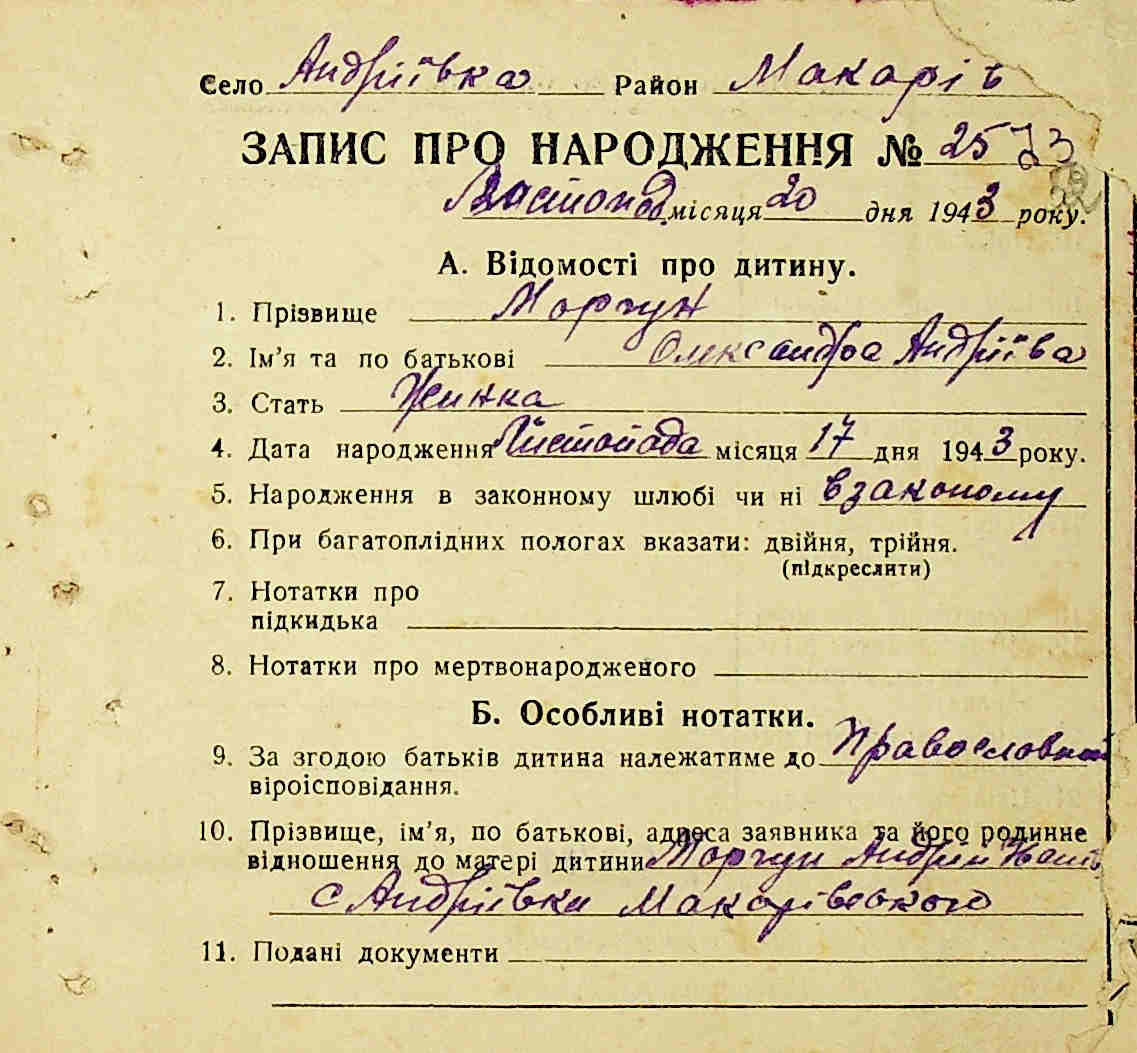 Село Андріївка Район Макарів
ЗАПИС ПРО НАРОДЖЕННЯ № 25
місяця 20 дня 1943 року.
А. Відомості про дитину.
1. Прізвище Моргун
2. Ім’я та по батькові Олександра Андріївa
3. Стать Жинка
4. Дата народження Листопада місяця 17 дня 1943 року.
5. Народження в законному шлюбі чи ні взаконому
6. При багатоплідних пологах вказати: двійня, трійня.
(підкреслити)
7. Нотатки про
підкидька
8. Нотатки про мертвонародженого
Б. Особливі нотатки.
9. За згодою батьків дитина належатиме до Православной
віроісповідання.
10. Прізвище, ім’я, по батькові, адреса заявника та його родинне
відношення до матері дитини Моргун Андрий
с Андріївки Макарівського
11. Подані документи